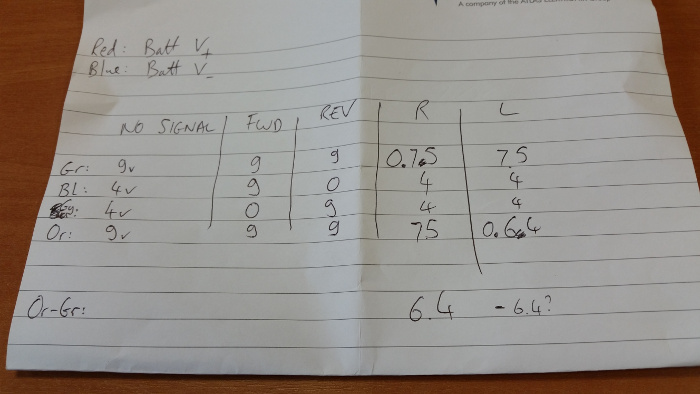 A company of the ATLAS
Red: Batt V+
Blue: Batt V-
NO SIGNAL FWD REV R L
Gr: 9v 9 9 0.75 7.5
BL: 4v 9 0 4 4
Gy: 4v 0 9 4 4
Or: 9v 9 9 75 0.6.4
Or-Gr: 6.4 -6.4?